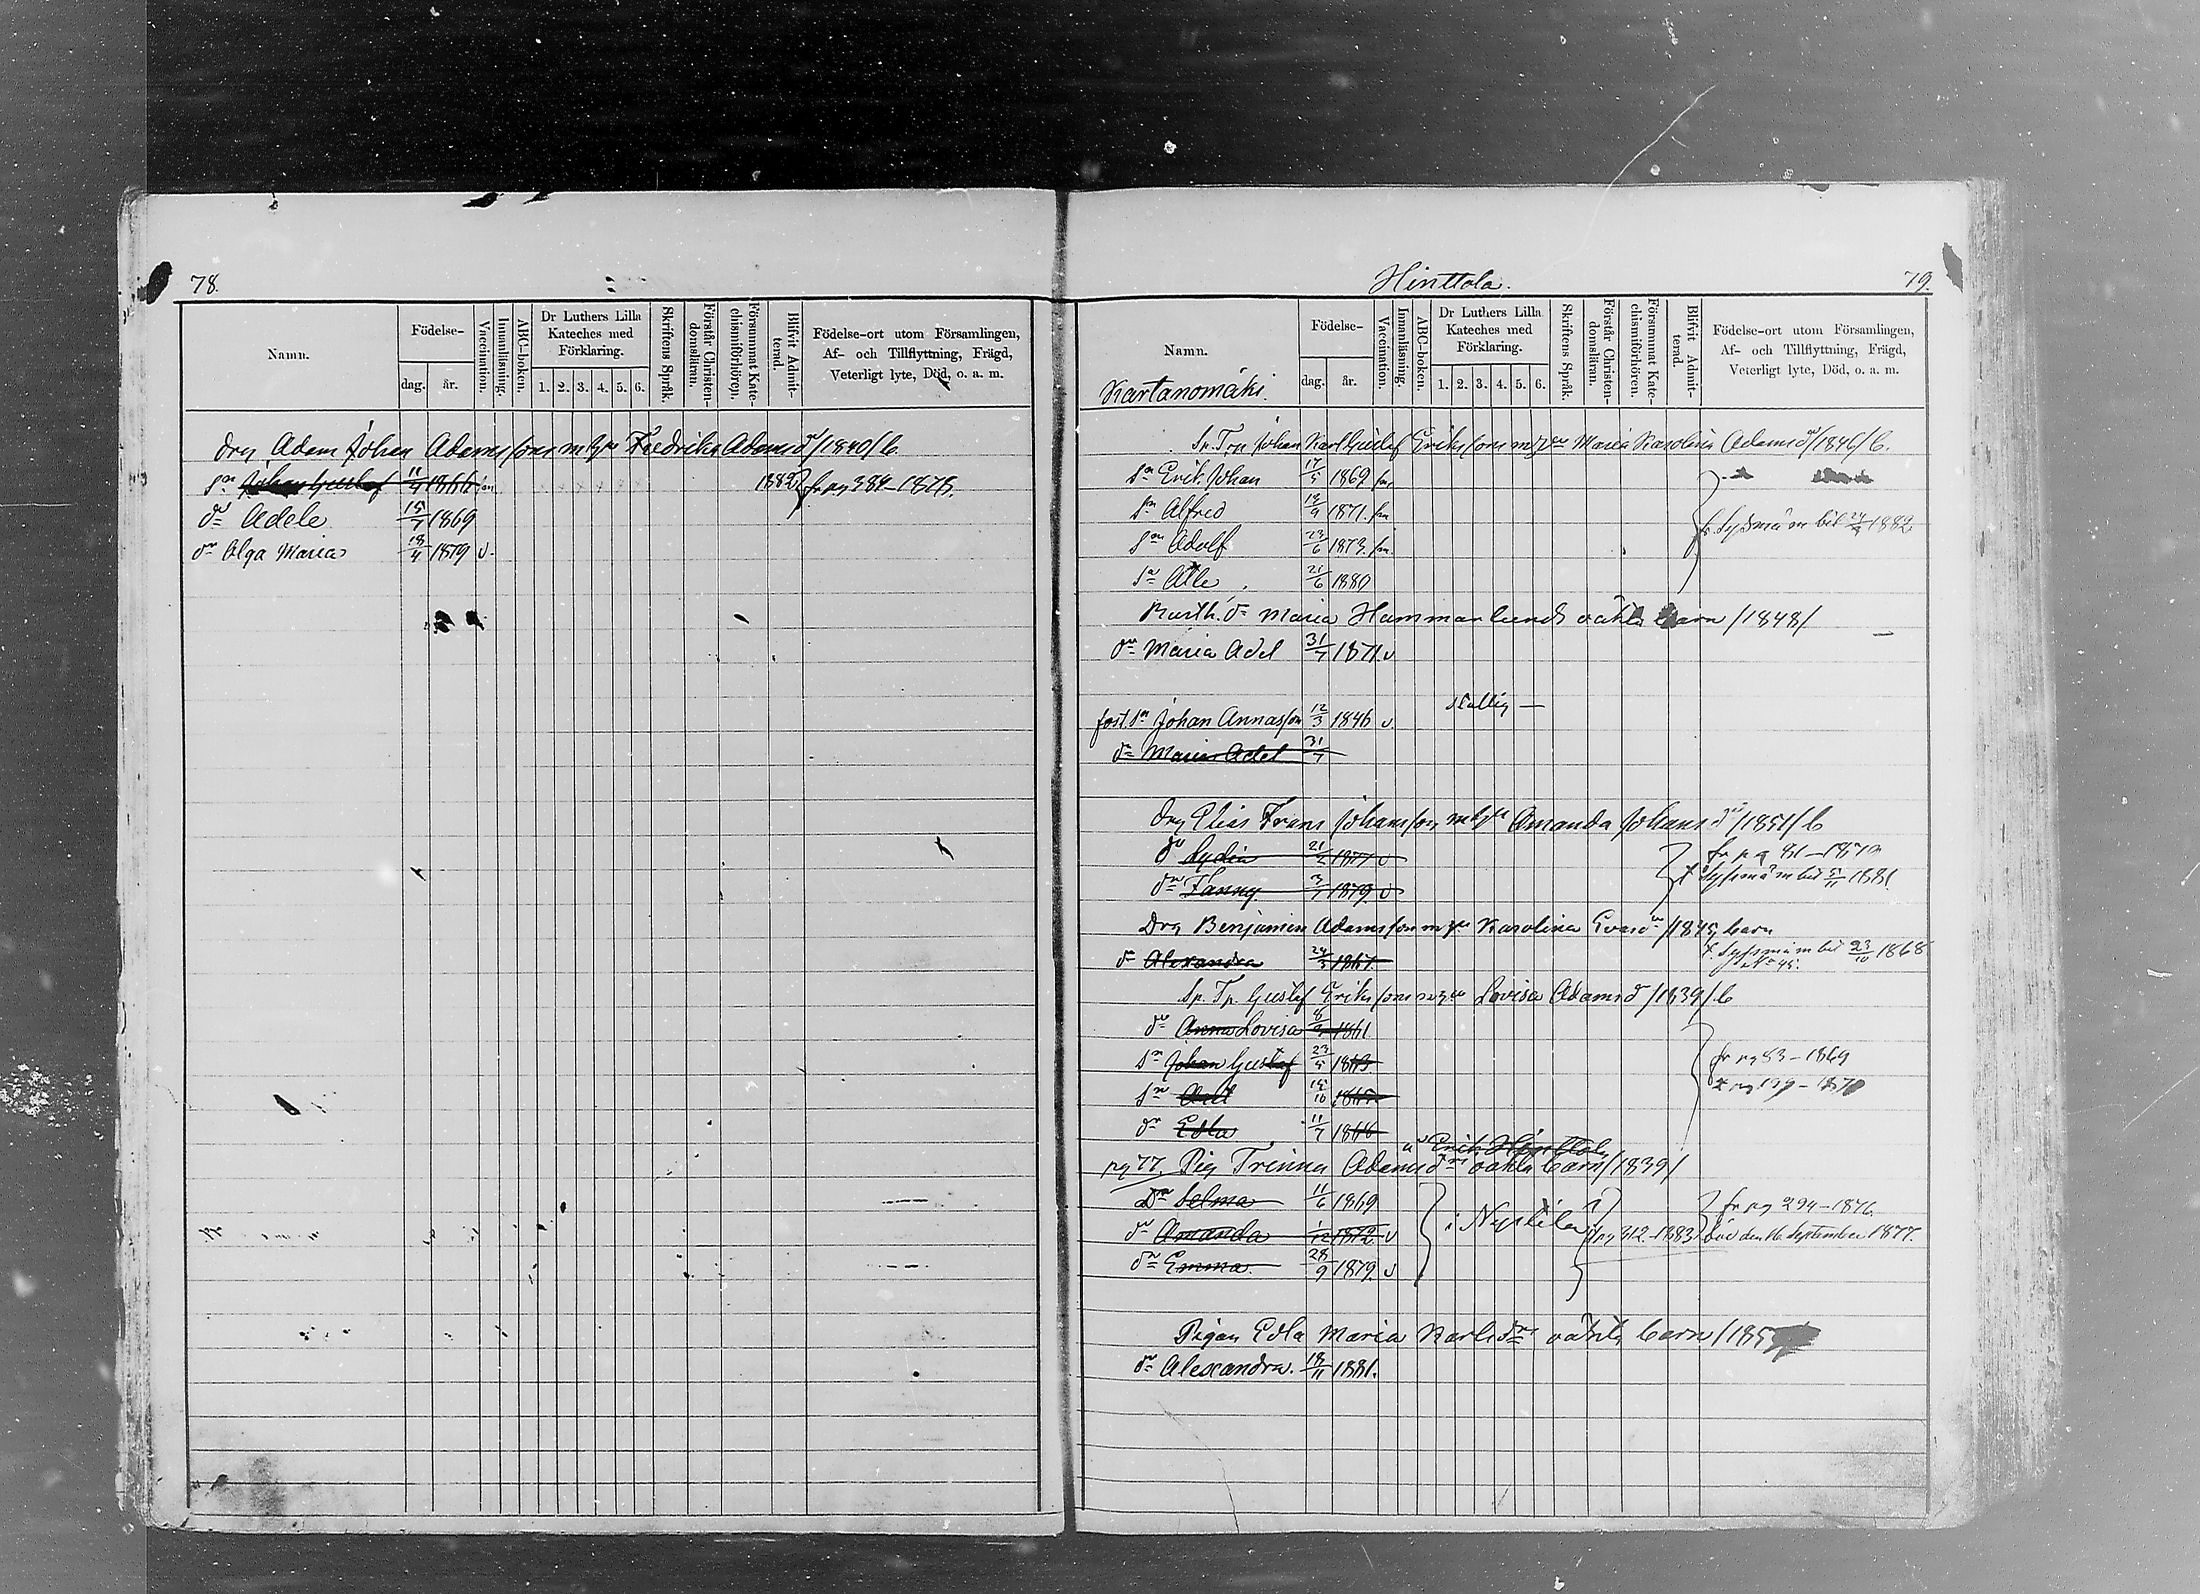 78.
Namn.
Födelse-
dag. år.
Vaccination.
Innanläsning.
ABC-boken.
Dr Luthers Lilla Kateches med Förklaring.
1. 2. 3. 4. 5. 6.
Skriftens Språk.
Förstår Christendomsläran.
Försummat Katechismiförhören.
Blifvit Admitterad.
Födelse-ort utom Församlingen,
Af- och Tillflyttning, Frägd,
Veterligt lyte, Död, o. a. m.
Drg Adam Johan Adamssons m hu Fredrika Adamsdr /1840/ b.
sn Johan Gustaf 11/9 1866 1882 fr pg 384–1878.
dr Adele 15/7 1869
dr Olga Maria 18/4 1879 v.
Hinttola.
79.
Namn.
Kartanomäki.
Födelse-
dag. år.
Vaccination.
Innanläsning.
ABC-boken.
Dr Luthers Lilla Kateches med Förklaring.
1. 2. 3. 4. 5. 6.
Skriftens Språk.
Förstår Christendomsläran.
Försummat Katechismiförhören.
Blifvit Admitterad.
Födelse-ort utom Församlingen,
Af- och Tillflyttning, Frägd,
Veterligt lyte, Död, o. a. m.
Sp. Trp Johan Karl Gustaf Erikssons m hu Maria Karolina Adamsdr /1846/ b.
sn Erik Johan 17/5 1869
sn Alfred 1871.
sn Adolf 23/6 1873.
fr Sysmä m bet 1882
sn Alle 21/6 1880
dr Maria Hammarlunds oäkta barn /1848/
dr Maria Adel 31/7 1871. v
fost. sn Johan Annasson 12/3 1846 v.
dr Maria Adel 31/7
Drg Elias Frans Johansson m hu Amanda Johansdr /1851/ b
dr Lydia 21/2 1877 v fr pg 81–1879
dr Fanny 1879 v t Sysmä m bet 5/11 1881.
Drg Benjamin Adamsson m hu Karolina Evasdr /1845/ barn
dr Alexandra 1867. t. Sysmä m bet 23/10 1868
Sp. Tp. Gustaf Eriksson m hu Lovisa Adamsdr /1839/ b
dr Anna Lovisa 1861
sn Johan Gustaf 23/5 1863 fr pg 83–1869
sn Axel 1865 t pg 139–1870
dr Edla 11/7 1866
Erik Hinttola
pg 77. Pig Trinna Adamsdrs oäkta barn /1839/
Dr Selma 11/6 1869 fr pg 294–1876.
dr Amanda 1/12 1872. v i Nystela t pg 312–1883 död den 16 September 1877.
dr Emma. 28/9 1879. v
Pigan Edla Maria Karlsdrs oäkta barn
dr Alexandra. 18/11 1881.